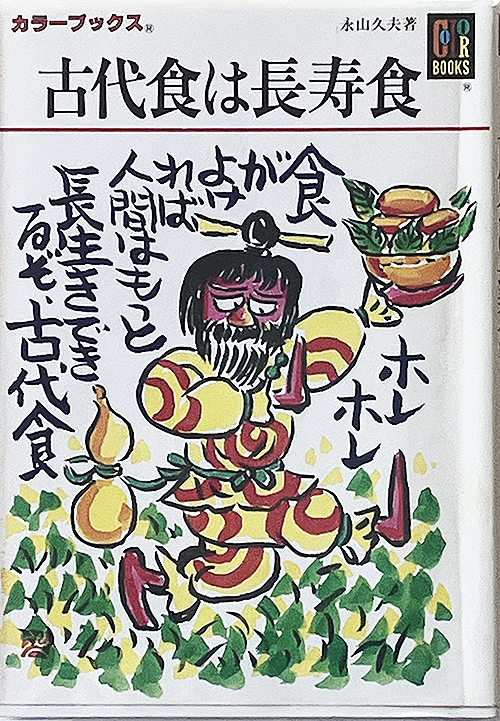 カラーブックス®
永山久夫著
COLOR
BOOKS
®
古代食は長寿食
食が
よけ
れば、
人間はもっと
長生きでき
るぞ、古代食
ホレ
ホレ